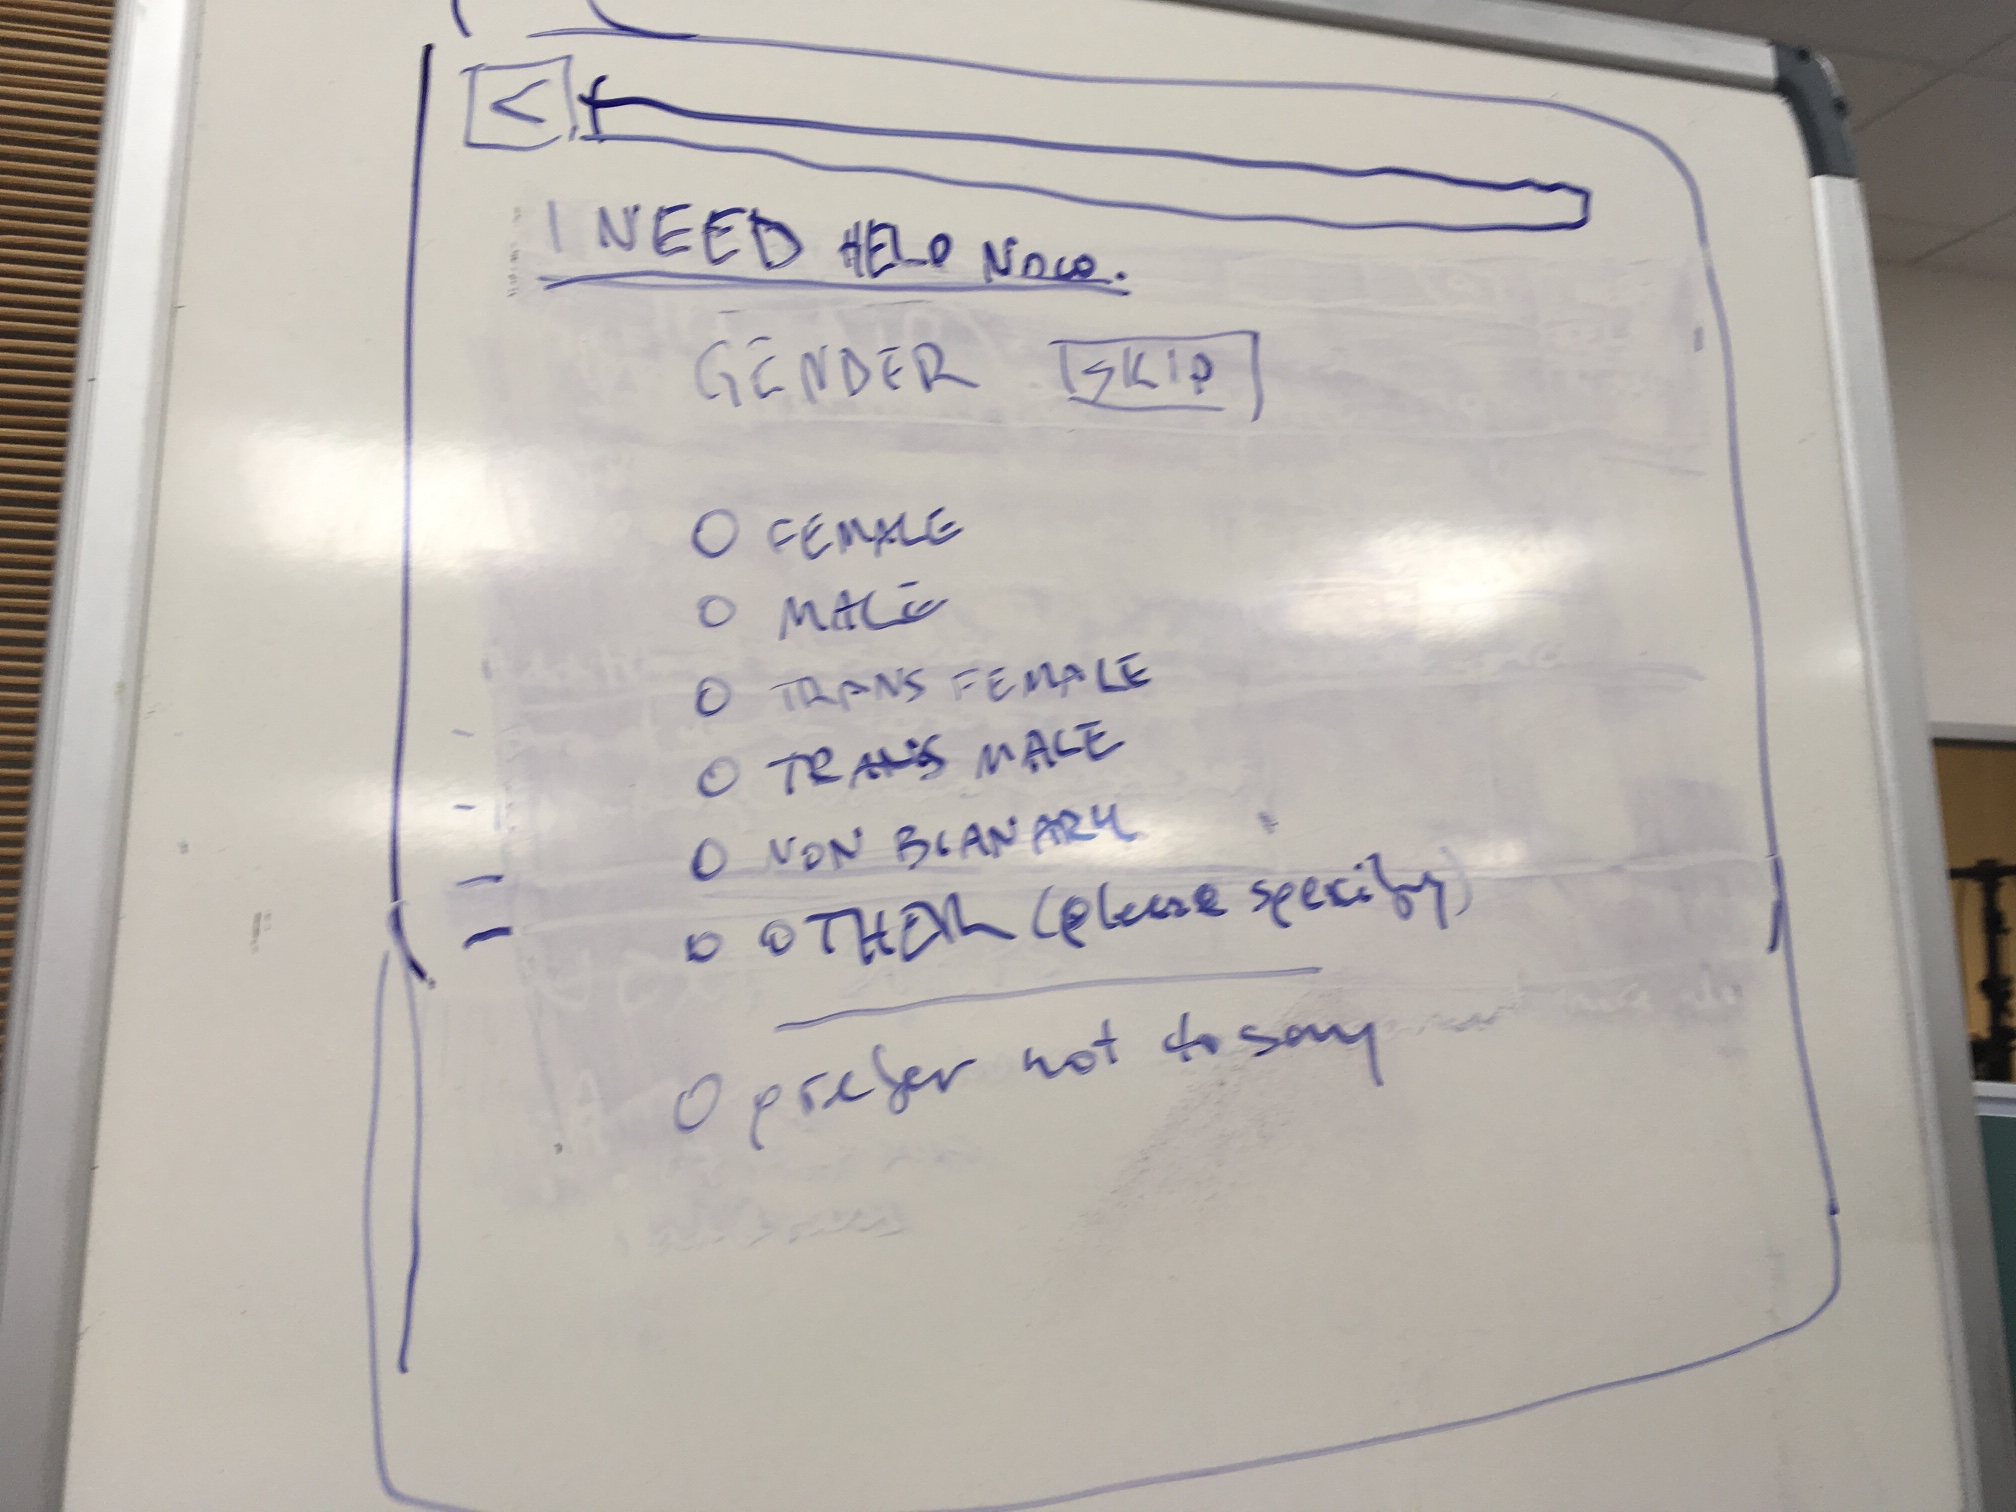 <
I NEED HELP NOW.
GENDER SKIP
O FEMALE
O MALE
O TRANS FEMALE
O TRANS MALE
O NON BIANARY
O OTHER (please specify)
O prefer not to say